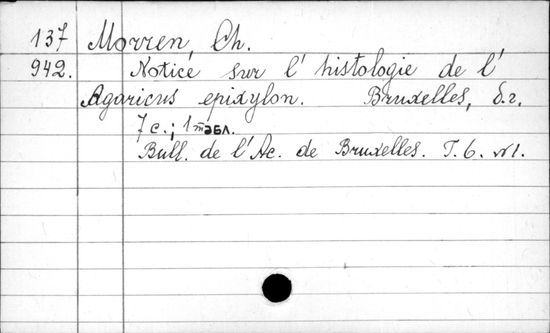 137 Morren, Ch.
942. Notice sur l' histologie de l'
Agaricus epixylon. Bruxelles, б.г.
7 с.; 1 табл.
Bull. de l'Ac. de Bruxelles. T. 6. №1.